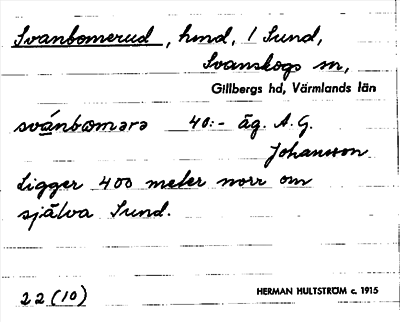 Svanbomerud, hmd, 1 Sund,
Svanskogs sn,
Gillbergs hd, Värmlands län
svánbomərə 40:- äg. A. G.
Johansson
Ligger 400 meter norr om
själva Sund.
22 (10)
HERMAN HULTSTRÖM c. 1915